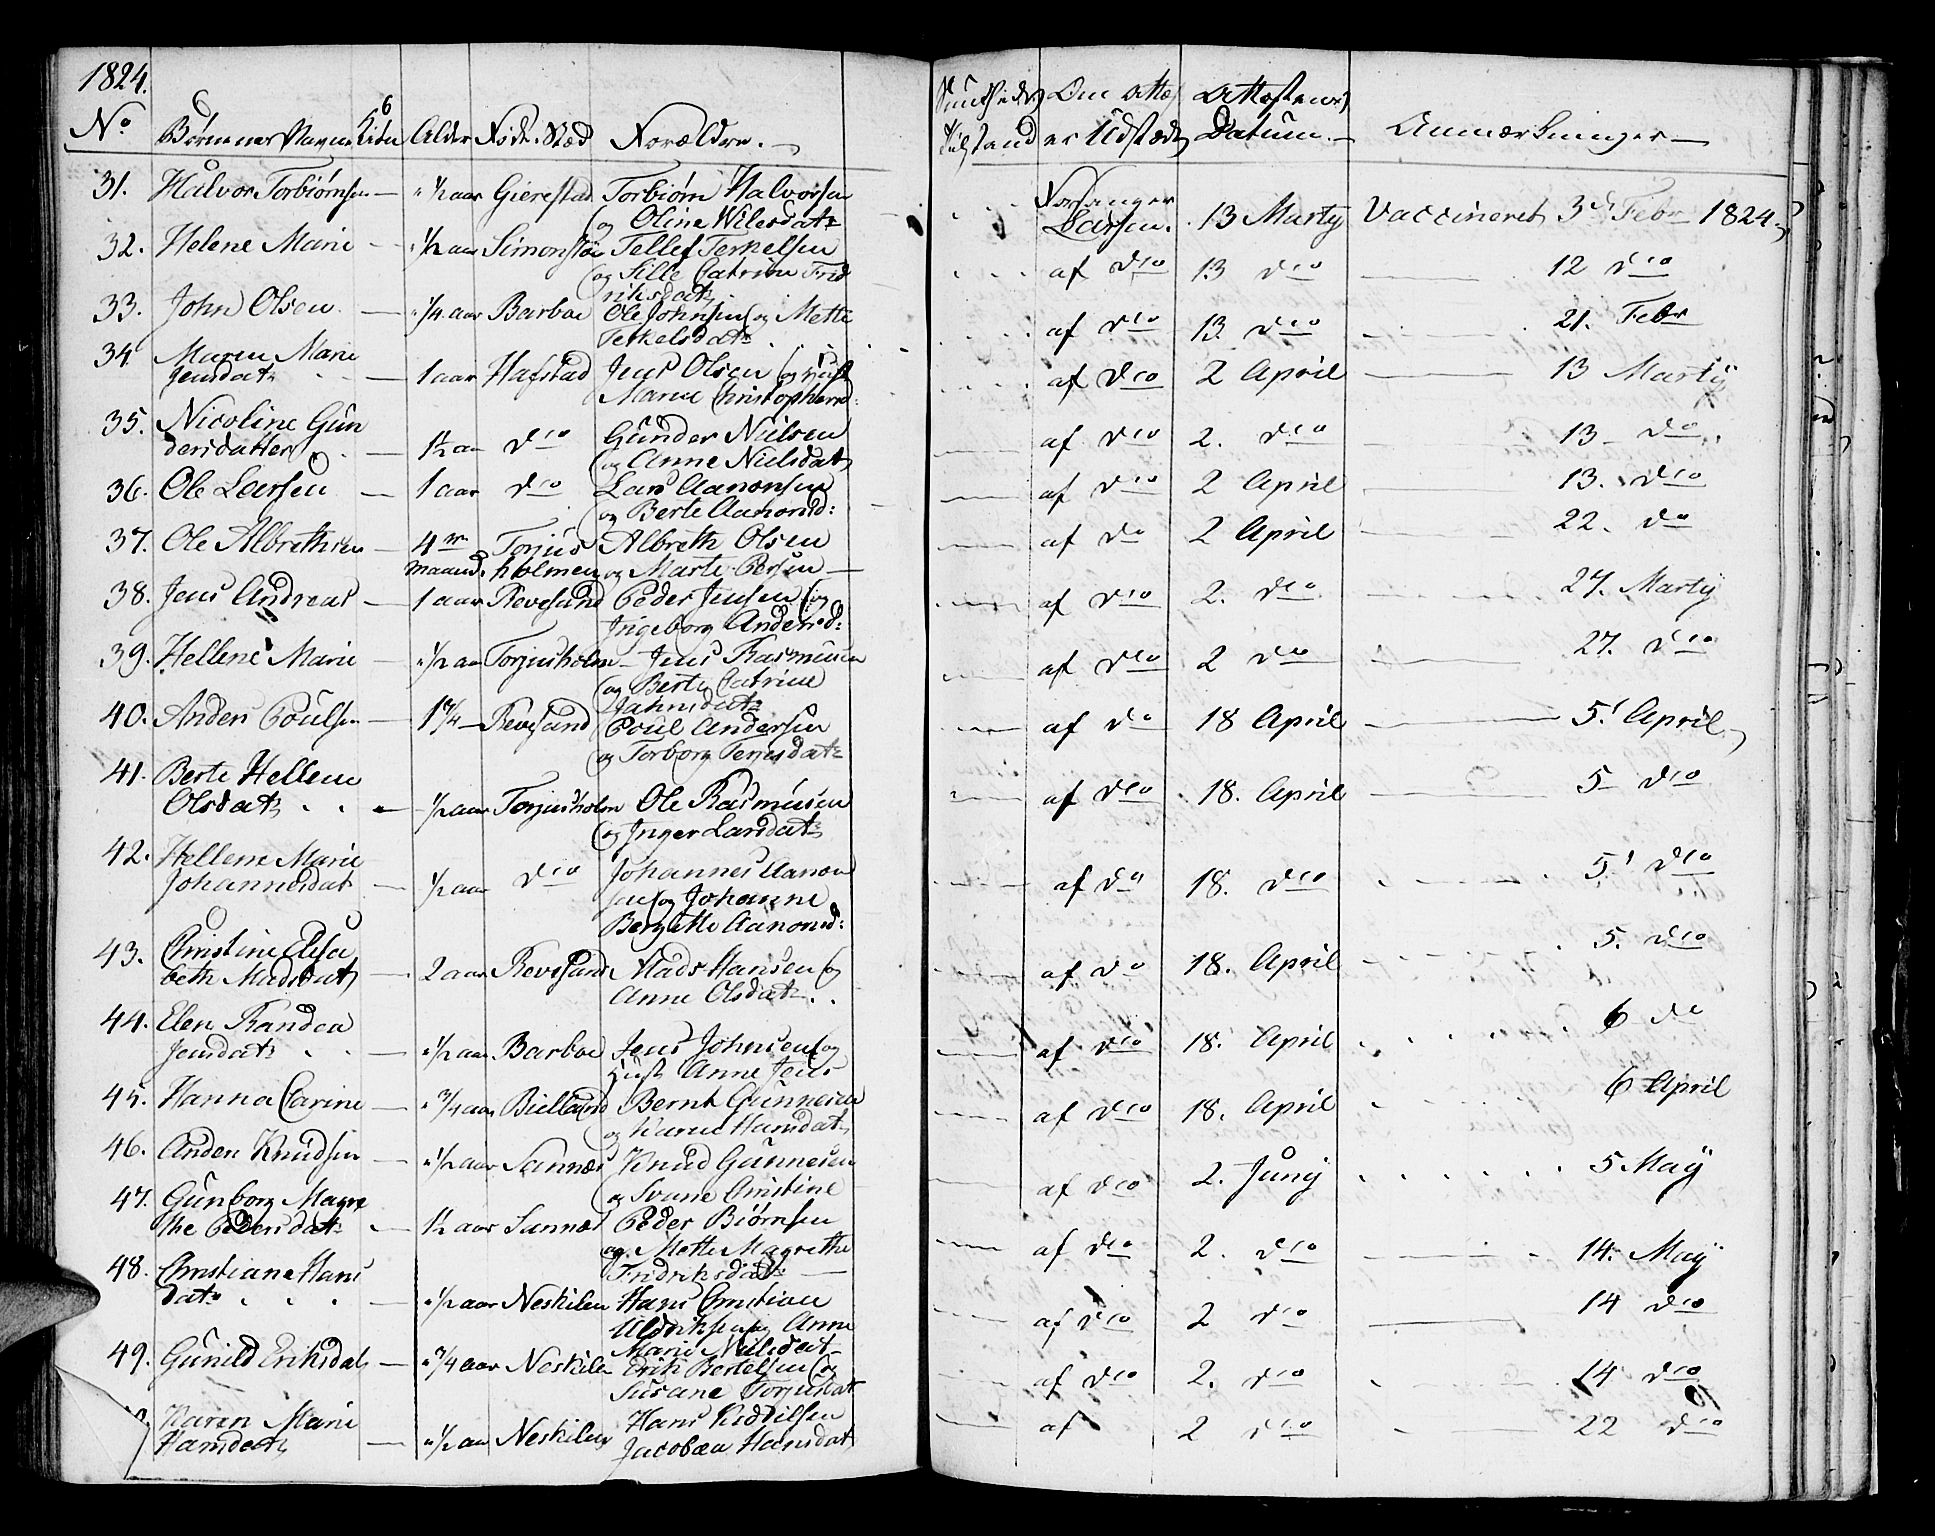 1824.
No Børnenes Navne Alder Føde-Stæd Forældre.
Sundheds Om Atte Attestens
Tilstand er Udstædt Datum. Anmærkninger
31. Halvor Torbiørnsen — " 1/2 aar Gierestad Torbiørn Halvorsen
og Oline Nilsdatr
Larsen. 13 Martÿ Vaccineret 3d Febr 1824
32. Helene Marie — " 1/2 aar Tellef Terkelsen
og Sille Catrine Frid
riksdatr
af dio 13 dio — 12 dio
33. John Olsen — " 1/4 aar Barboe Ole Johnsen og Mette
Terkelsdatr
af dio 13 dio — 21. Febr
34 Maren Marie
Jensdatr — 1 aar Hafstad Jens Olsen og Hust
Maren Christophersd:
af dio 2 April — 13 Martÿ
35. Nicoline Gun
dersdatter — 1 1/2 aar dio Gunder Nielsen
og Anne Nielsdatr
af dio 2. dio — 13 do
36. Ole Larsen — 1 aar dio Lars Aanonsen
og Berte Aanonsd:
af dio 2 April 13. dio
37. Ole Albrethsen — 4re Torjus Albreth Olsen
maand. holmen og Marte Persen —
af do 2 April — 22. do
38. Jens Andreas — 1 aar Revesund Peder Jensen og
Ingeborg Andersd:
af dio 2. dio 27. Martÿ
39. Hellene Marie — " 1/2 aar Torjusholm — Jens Rasmusen
og Berte Catrine
Jahnsdatr
af dio 2 dio — 27. dio
40. Anders Poulsen — 1 3/4 — Revesund Poul Andersen
og Torborg Terjesdatr
af do 18 April — 5t April
41. Berte Hellene
Olsdatr — 1/2 aar Torjusholm Ole Rasmusen
og Inger Larsdatr
af dio 18. April — 5 dio
42. Hellene Marie
Johannesdat — 1/2 aar dio Johannes Aanon
sen og Johanne
Bergitte Aanonsd:
af do 18. dio 5t dio
43. Christine Elisa
beth Madsdatr — 2 aar Revesund Mads Hansen og
Anne Olsdatr
af do 18. April 5. dio
44. Elen Randea
Jensdatr — " 1/2 aar Barboe Jens Johnsen og
Hust Anne Jens
af dio 18. April 6 do
45. Hanna Carine — " 3/4 aar Bielland Bernt Gunnersen
og Karen Hansdatr
af dio 18. April 6 April
46. Anders Knudsen — " 1/2 aar Sannæs Knud Gunnersen
og Svane Christine
af dio 2. Junÿ 5 Maÿ
47. Gunborg Magre
the Pedersdatr — 1 1/2 aar Sannæs Peder Biørnsen
og Mette Magrethe
Fridriksdatr —
af dio 2. dio — 14. Maÿ
48. Christiane Hans
datr — " 1/2 aar Neskilen Hans Christian
Aldriksen og Anne
Marie Nilsdatr
af dio 2 dio — 14 dio
49. Gunild Eriksdatr — " 3/4 aar Neskilen Erik Bertelsen og
Susane Torjusdatr
af dio 2. dio 14 dio
Karen Marie
Hansdatr — " 1/2 aar Neskilen Hans
Jacobæa Hansdatr
af 2 dio — 22 dio